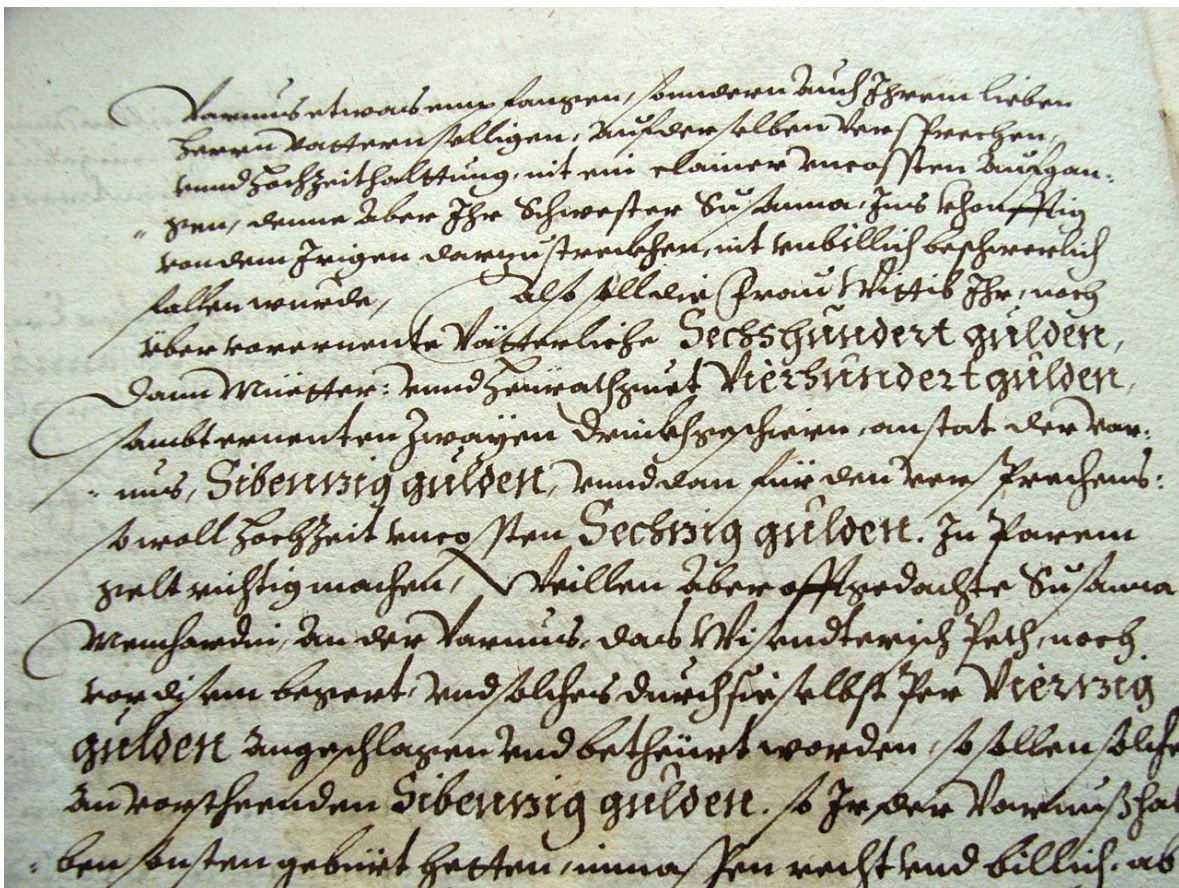 Varnus etwas empfangen, sonndern auch Ihrem lieben
Herrn Vattern selligen, auf derselben Versprechen,
vnnd Hochzeithalttung, nit ein clainer vncossten aufgan-
gen, denne aber Ihr Schwester Susanna, Ins khonfftig
von dem Irigen darzustreckhen, nit vnbillich beschwerlich
fallen wurde, Also soll die Frau Wittib Ihr, noch
über vorernente Vätterliche Sechshundert gulden,
Dann Muetter: vnnd Heürathguet Vierhundert gulden,
sambt ernenten Zwayen drinckhgeschiern, anstat der Var:
nus, Sibennzig gulden, vnnd dan für den versprechens:
sowoll Hochzeit vncossten Sechzig gulden. In Parem
gelt richtig machen, Weillen aber offtgedachte Susanna
an der Varnus, das noch
vor disem begert, vnd solches durch sie selbst per Vierzig
gulden angeschlagen vnd betheürt worden, so sollen solche
an vorsteenden Sibennzig gulden. so Ir der Varnuß hal
ben sonsten gebürt hetten, inmassen recht vnd billich, ab